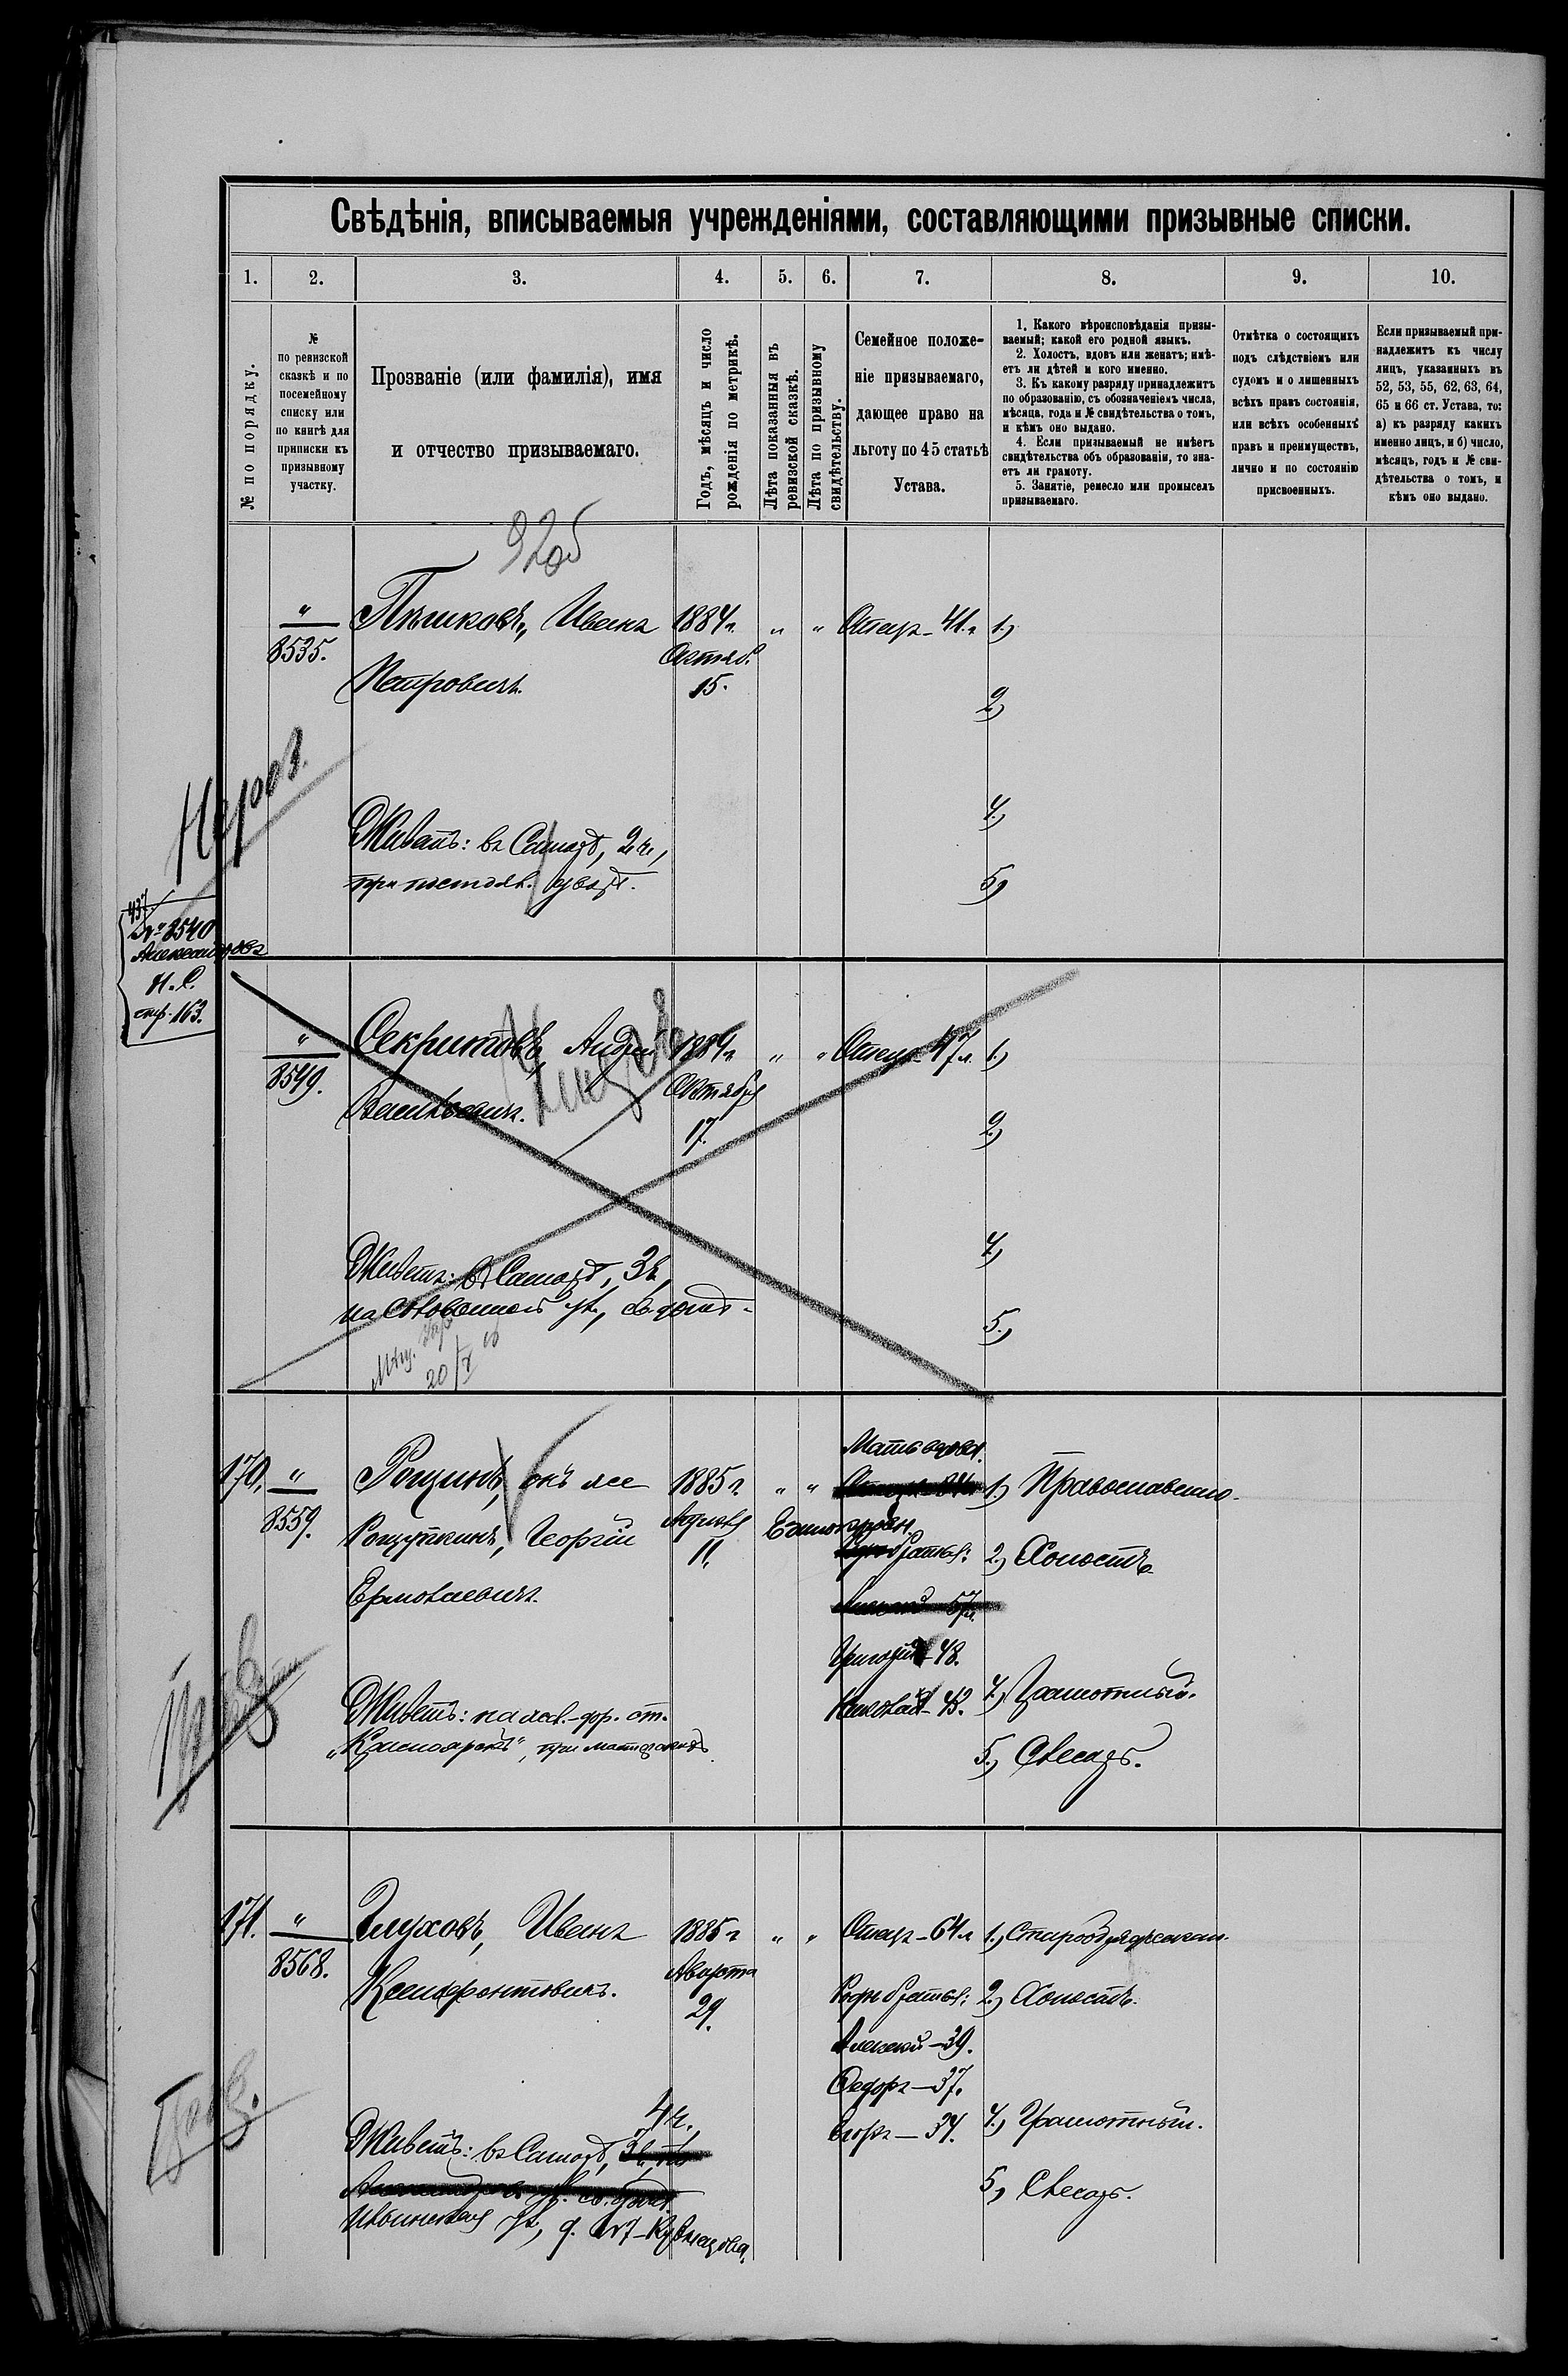 Свѣдѣнія, вписываемыя учрежденіями, составляющими призывные списки.
1. 2. 3. 4. 5. 6. 7. 8. 9. 10.
№ по порядку.
№
по ревизской
сказкѣ и по
посемейному
списку или
по книгѣ для
приписки къ
призывному
участку.
Прозваніе (или фамилія), имя
и отчество призываемаго.
Годъ, мѣсяцъ и число
рожденія по метрикѣ.
Лѣта показанныя въ
ревизской сказкѣ.
Лѣта по призывному
свидѣтельству.
Семейное положе-
ніе призываемаго,
дающее право на
льготу по 45 статьѣ
Устава.
1. Какого вѣроисповѣданія призы-
ваемый; какой его родной языкъ.
2. Холостъ, вдовъ или женатъ; имѣ-
етъ ли дѣтей и кого именно.
3. Къ какому разряду принадлежитъ
по образованію, съ обозначеніемъ числа,
мѣсяца, года и № свидѣтельства о томъ,
и кѣмъ оно выдано.
4. Если призываемый не имѣетъ
свидѣтельства объ образованіи, то зна-
етъ ли грамоту.
5. Занятіе, ремесло или промыселъ
призываемаго.
Отмѣтка о состоящихъ
подъ слѣдствіемъ или
судомъ и о лишенныхъ
всѣхъ правъ состоянія,
или всѣхъ особенныхъ
правъ и преимуществъ,
лично и по состоянію
присвоенныхъ.
Если призываемый при-
надлежитъ къ числу
лицъ, указанныхъ въ
52, 53, 55, 62, 63, 64,
65 и 66 ст. Устава, то:
а) къ разряду какихъ
именно лицъ, и б) число,
мѣсяцъ, годъ и № сви-
дѣтельства о томъ, и
кѣмъ оно выдано.
92об
" Пѣшковъ, Иванъ 1884г. " " Отецъ-41.г 1.)
8535. Октяб.
Петровичъ. 15.
2)
4.)
Живетъ: въ Самарѣ, 2ч.,
при постоял. дворѣ. 5)
437.
№ 8540
Александровъ
И. С.
стр. 163.
" Секритовъ, Андрей 1884г. " " Отецъ-47л. 1.)
8549. Октября
Васильевичъ. 17.
2.)
4.)
Живетъ: въ Самарѣ, 3ч,
на Соловьиной ул., св. домъ. 5.)
20/X
170. " Рощинъ, онъ же 1885г. " " Мать вдова. 1.) Православнаго.
8559. Рощупкинъ, Георгій Апрѣля Единокровн.
11. братья: 2.) Холостъ
Ермолаевичъ.
Григорій-48.
Николай-43. 4.) Грамотный.
Живетъ: на жел.-дор. ст.
"Красноярскъ", при матеріалахъ 5.) Слесарь.
171. " Глуховъ, Иванъ 1885г " " Отецъ-64л 1.) Старообрядческаго.
8568. Августа
Ксенофонтовичъ. 29. Родн братья: 2.) Холостъ.
Алексѣй-39.
Федоръ-37.
4ч. Егоръ-34. 4.) Грамотный.
Живетъ: въ Самарѣ, 3ч, на
5.) Слесарь.
Ильинская ул., д. №7-Кузнецова.